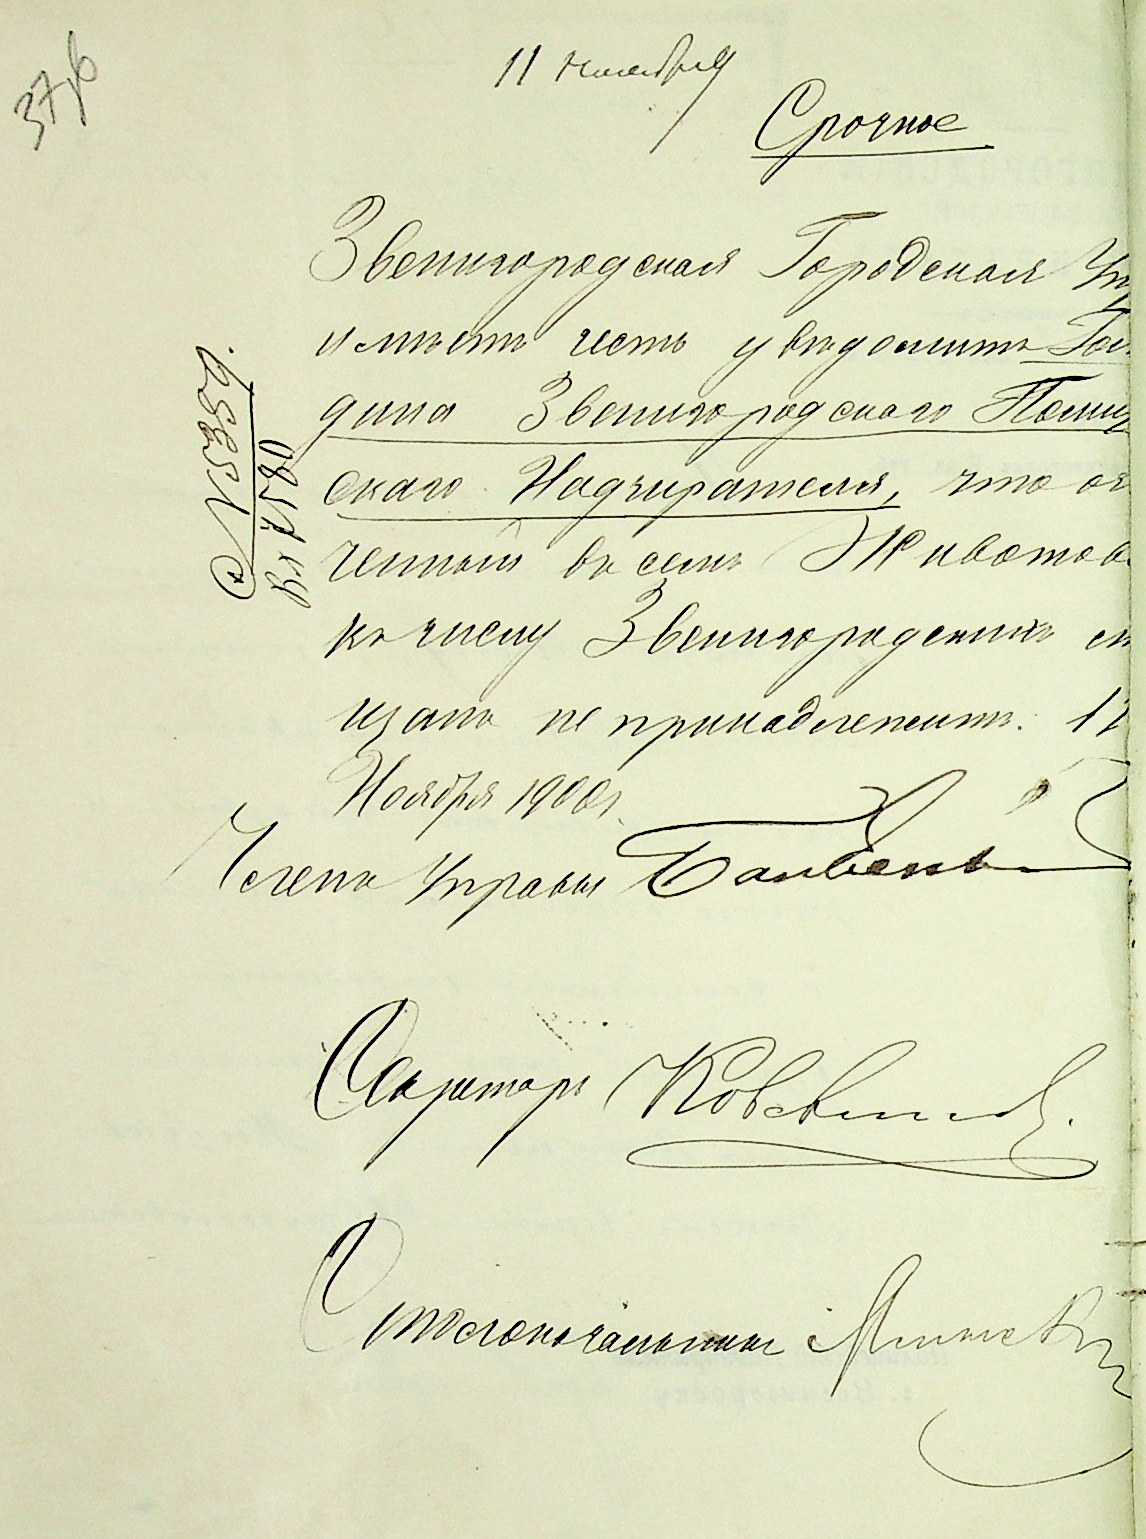 37об
11 ноября
Срочное
Звенигородская Городская Уп
имѣетъ честь увѣдомить Гос
дина Звенигородского Полицей
скаго Надзирателя, что оз
ченный въ семъ Животов
къ числу Звенигородскихъ мѣ
щанъ не принадлежитъ. 12
Ноября 1900 г.
Членъ Управы
Секретарь
Столоначальникъ